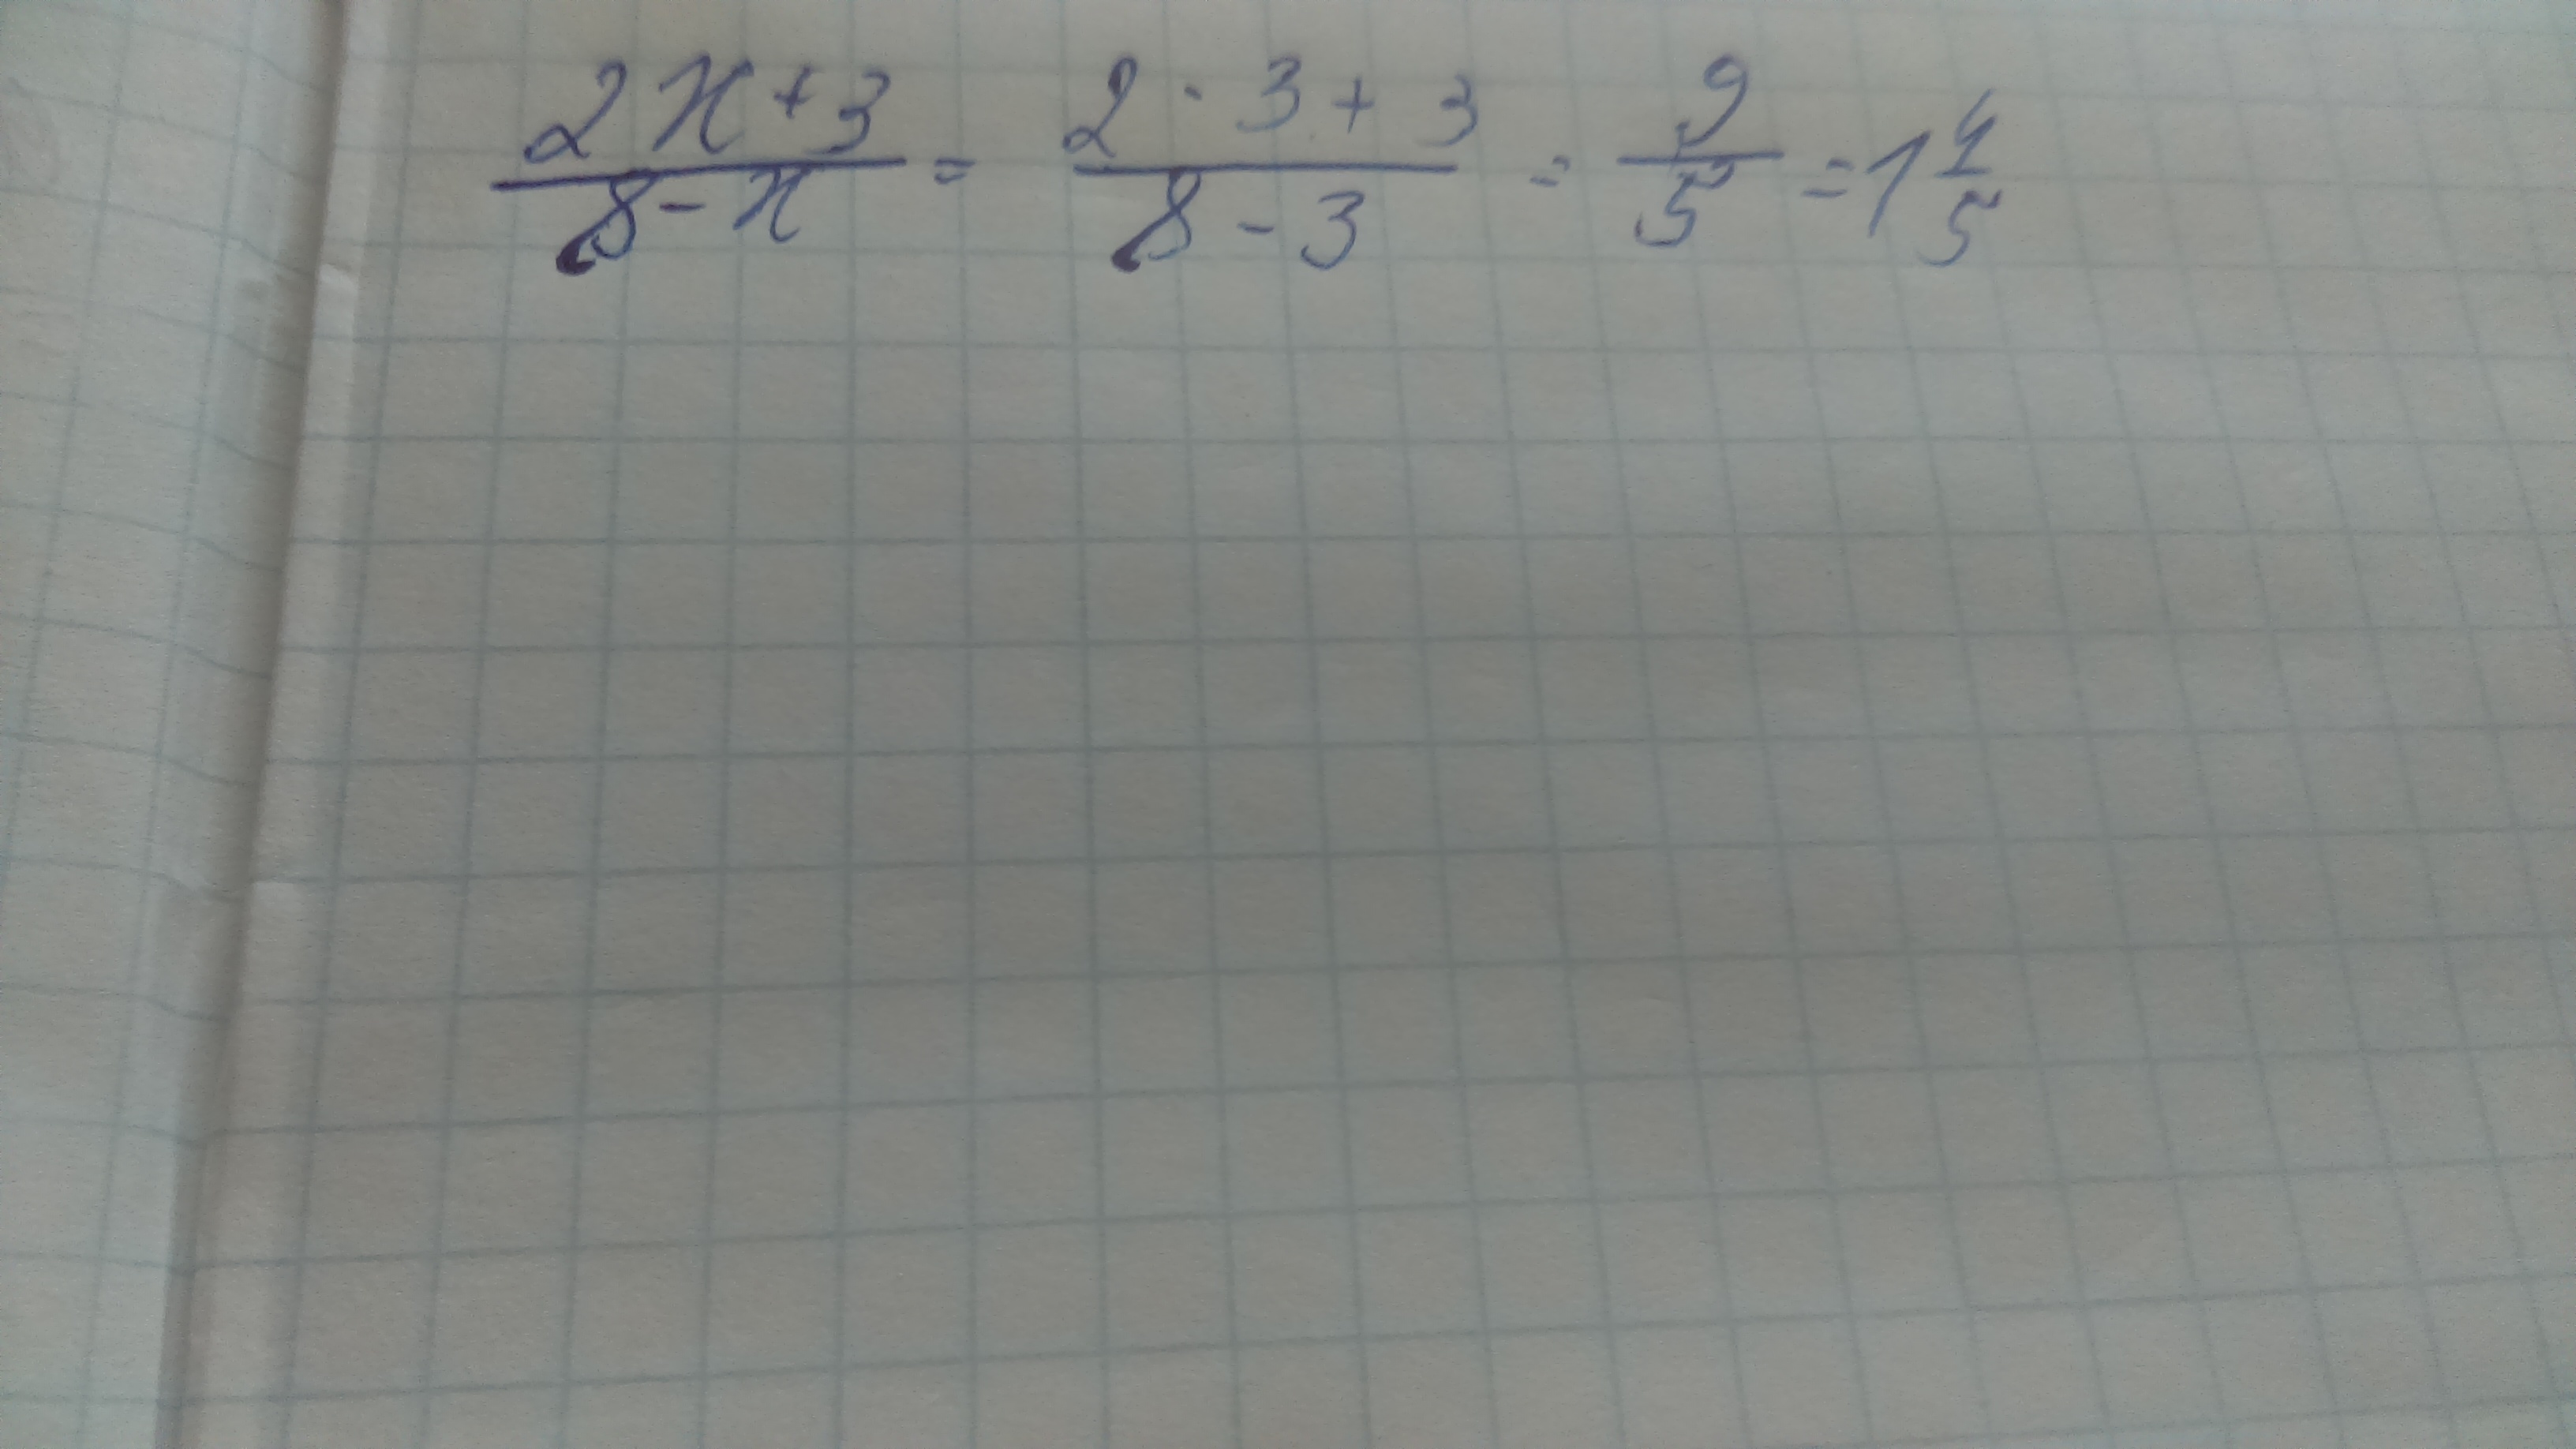 (2x+3)/(8-x) = (2·3+3)/(8-3) = 9/5 = 1 4/5